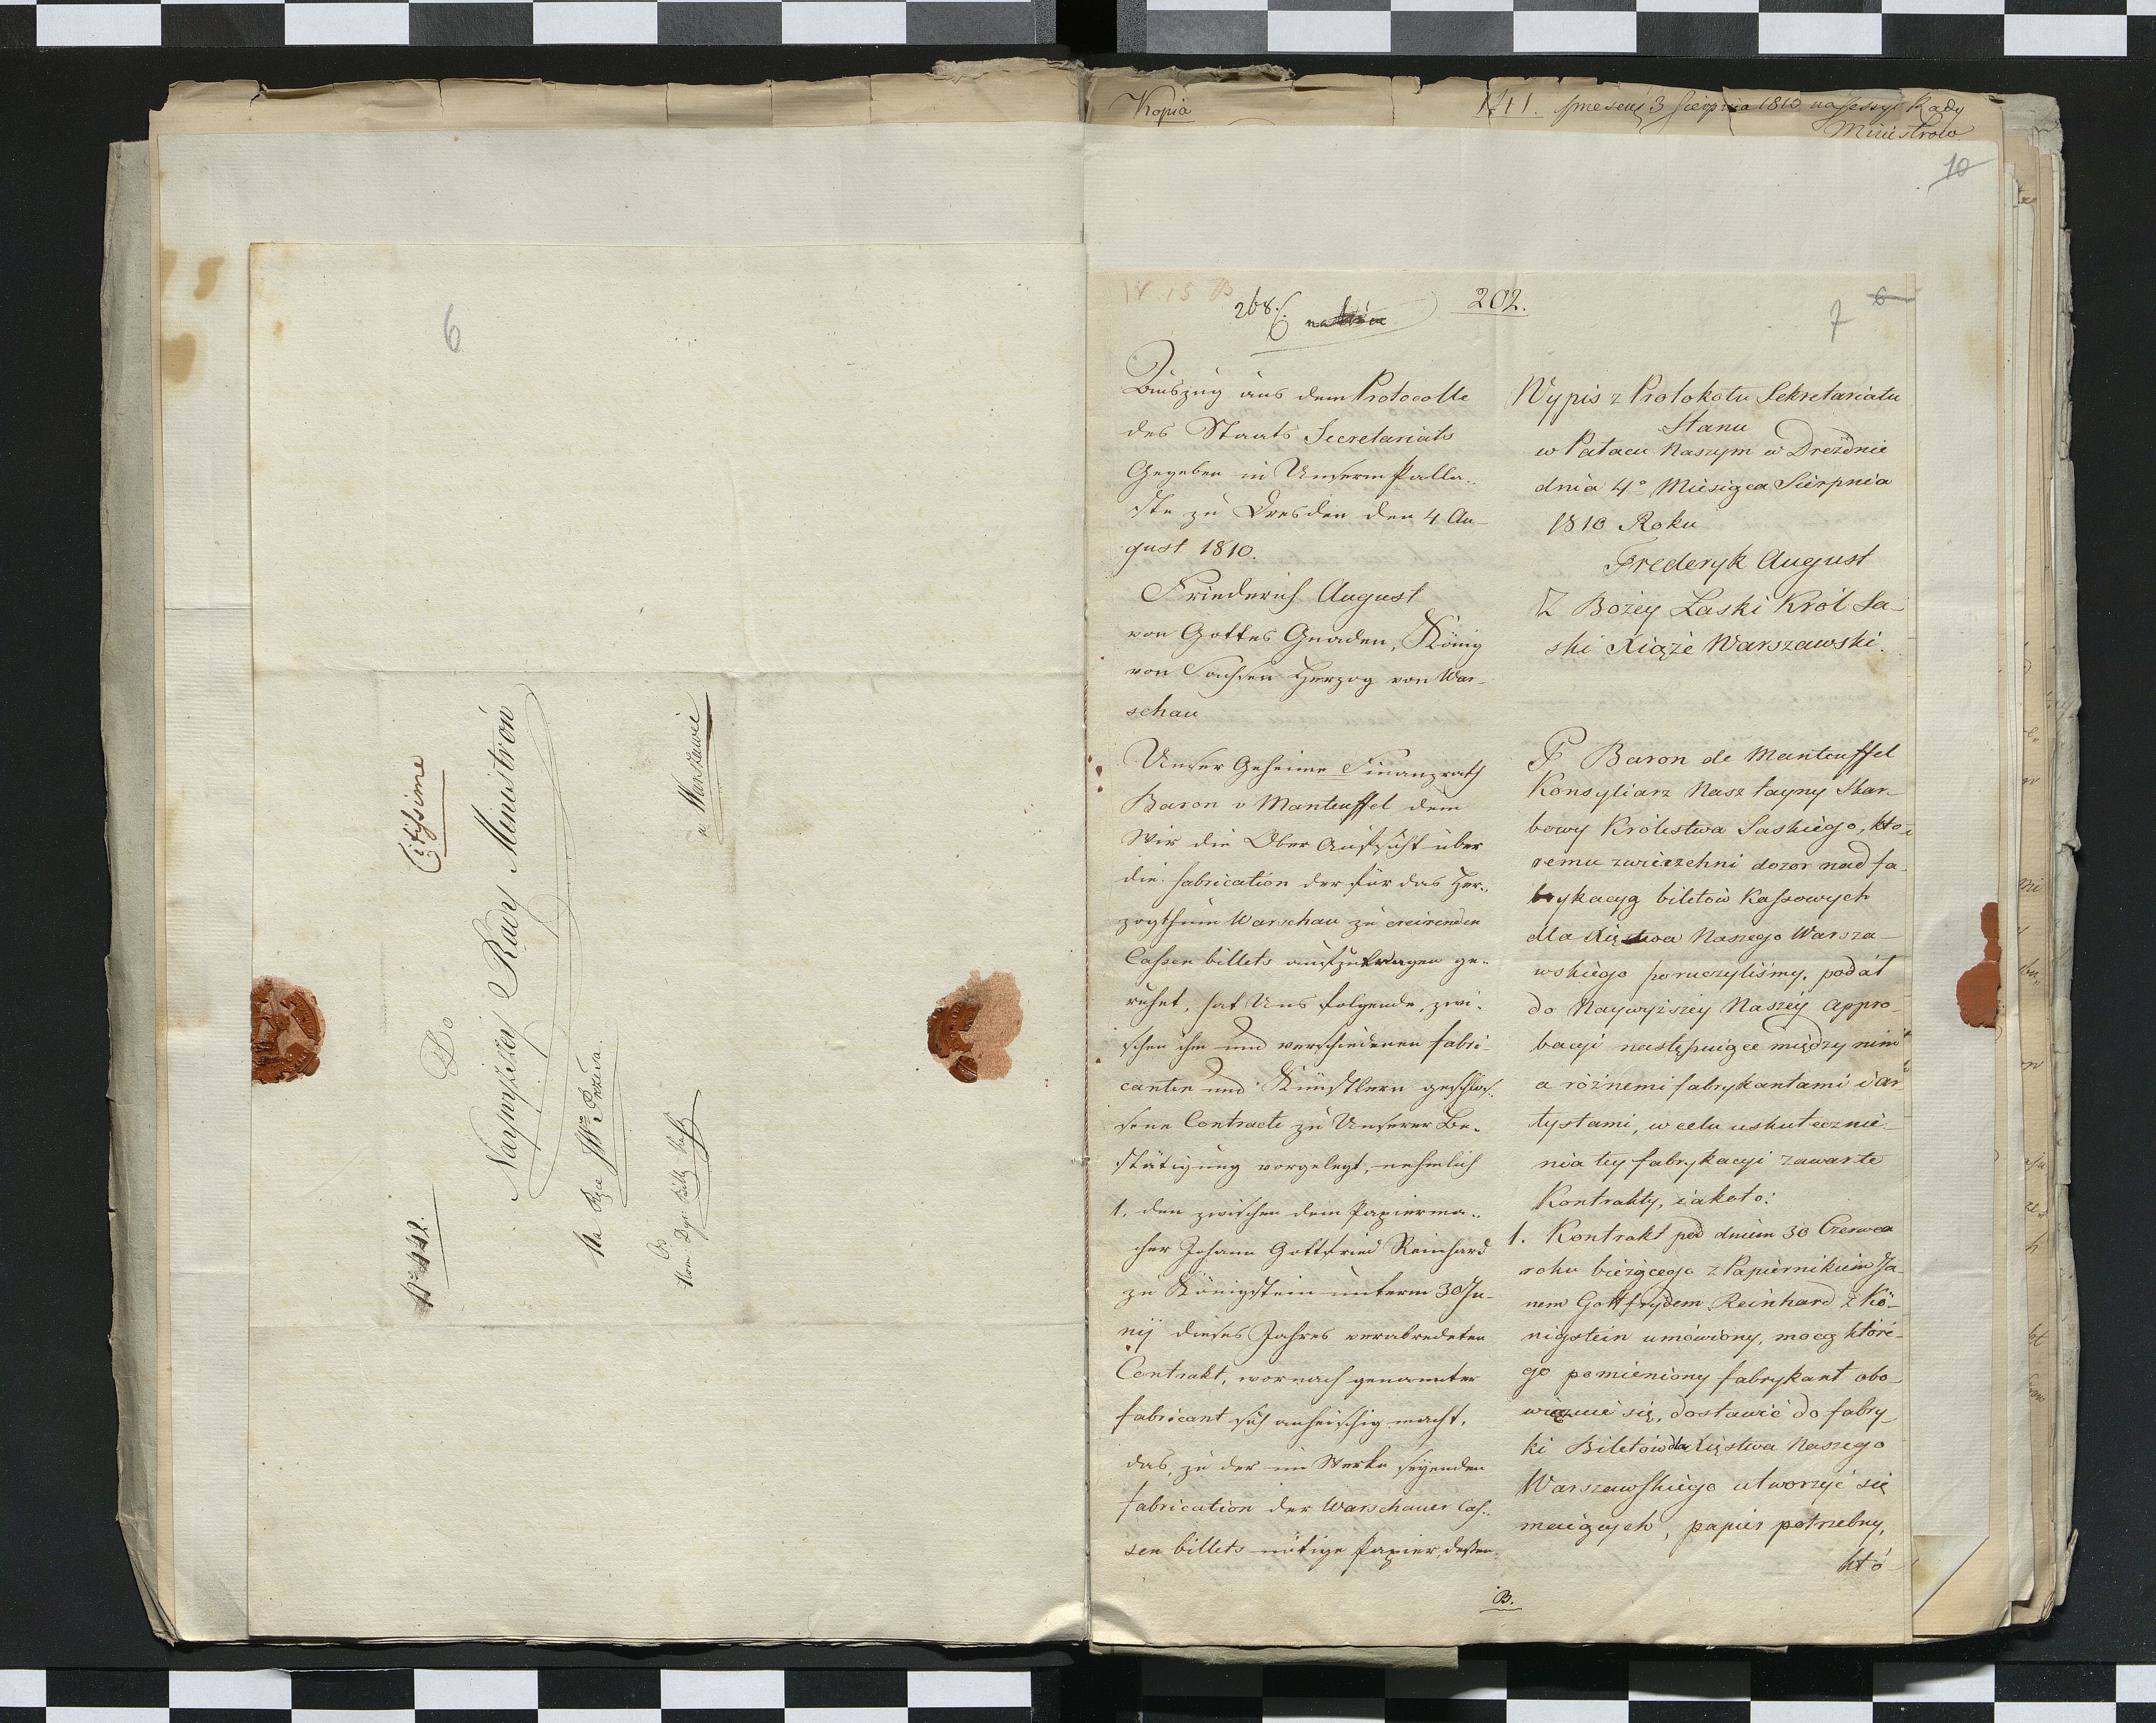 6
Citissime
Do
Naywyższey Rady Ministrów
Na Ręce JWo Prezesa.
w Warszawie
Od
Kom. Dyr. Bill. Kass.
No 442.
Kopia
141. wniesony 3 Sierpnia 1810 na Sessyi Rady
Ministrow
10
268.
202.
7
6
Auszug aus dem Protocolle
des Staats Secretariats
Gegeben in Unserm Palla-
ste zu Dresden den 4 Au-
gust 1810.
Friederich August
von Gottes Gnaden, König
von Sachsen Herzog von War-
schau
Unser Geheime Finanzrath
Baron v Manteuffel dem
Wir die Ober Aufsicht über
die fabrication der für das Her-
zogthum Warschau zu creirenden
Cassen billets aufzutragen ge-
ruhet, hat Uns folgende, zwi-
schen ihm und verschiedenen fabri-
canten und Künstlern geschlos-
sene Contracte zu Unserer Be-
stätigung vorgelegt, nehmlich
1, den zwischen dem Papierma-
cher Johann Gottfried Reinhard
zu Königstein unterm 30 Ju-
nij dieses Jahres verabredeten
Contrakt, wornach genannter
fabricant sich anheischig macht,
das, zu der im Werke seyenden
fabrication der Warschauer Cas-
sen billets nötige Papier, dessen
Wypis z Protokołu Sekretariatu
Stanu
w Pałacu Naszym w Dreźdnie
dnia 4o Miesiąca Sierpnia
1810 Roku
Frederyk August
Z Bożey Łaski Król Sa-
ski Xiąże Warszawski.
P Baron de Manteuffel
Konsyliarz Nasz tayny Skar-
bowy Królestwa Saskiego, któ-
remu zwierzchni dozor nad fa-
brykacyą biletów Kassowych
dla Xięstwa Naszego Warsza-
wskiego poruczyliśmy, podał
do Naywyższey Naszey appro-
bacyi następuiące między nim
a różnemi fabrykantami i ar-
tystami, w celu uskutecznie-
nia tey fabrykacyi zawarte
Kontrakty, iakoto:
1. Kontrakt pod dniem 30 Czerwca
roku bieżącego z Papiernikiem Ja-
nem Gottfrydem Reinhard z Kö-
nigstein umówiony, mocą które-
go pomieniony fabrykant obo-
wiązuie się, dostawić do fabry-
ki Biletów dla Xięstwa Naszego
Warszawskiego utworzyć się
maiących, papier potrzebny,
któ
B.